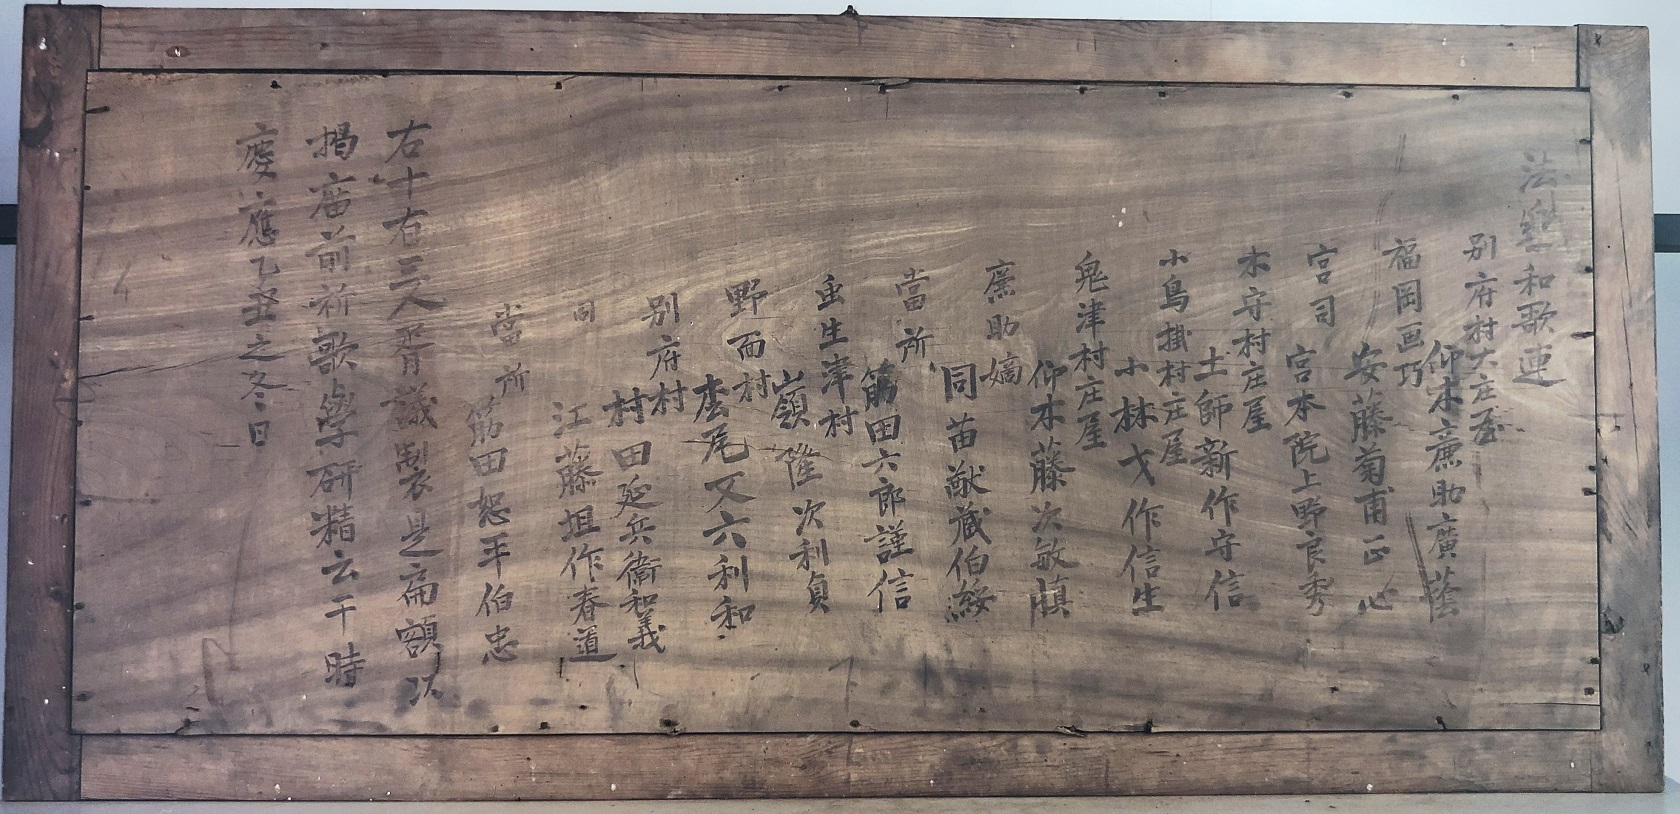 法樂和歌連
別府村大庄屋
仰木廉助廣蔭
福岡画巧
安藤菊甫正心
宮司
宮本院上野良秀
木守村庄屋
土師新作守信
小鳥掛村庄屋
小林弋作信生
鬼津村庄屋
仰木藤次敏慎
廉助嫡
同苗猷蔵伯綏
當所
筋田六郎謹信
垂生津村
嶺隆次利貞
野面村
松尾又六利和
別府村
村田延兵衛和義
同
江藤坦作春道
當所
筋田恕平伯忠
右十有三人胥議製是扁額以
掲廟前祈歌學研精云干時
慶應乙丑之冬日